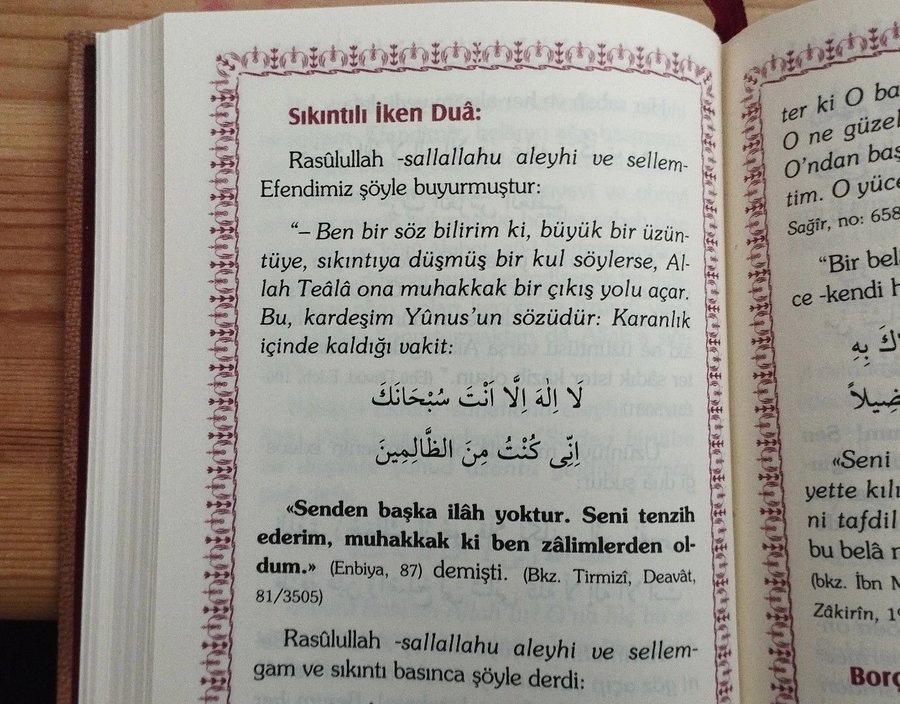 Sıkıntılı İken Duâ:
Rasûlullah -sallallahu aleyhi ve sellem-
Efendimiz şöyle buyurmuştur:
“– Ben bir söz bilirim ki, büyük bir üzün-
tüye, sıkıntıya düşmüş bir kul söylerse, Al-
lah Teâlâ ona muhakkak bir çıkış yolu açar.
Bu, kardeşim Yûnus’un sözüdür: Karanlık
içinde kaldığı vakit:
لَا اِلٰهَ اِلَّا اَنْتَ سُبْحَانَكَ
اِنّٖى كُنْتُ مِنَ الظَّالِمِينَ
«Senden başka ilâh yoktur. Seni tenzih
ederim, muhakkak ki ben zâlimlerden ol-
dum.» (Enbiya, 87) demişti. (Bkz. Tirmizî, Deavât,
81/3505)
Rasûlullah -sallallahu aleyhi ve sellem-
gam ve sıkıntı basınca şöyle derdi:
ter ki O
O ne güzel
O’ndan
tim. O
Sağîr, no:
“Bir
ce -kendi
بِهِ
«Seni
yette
ni tafdil
bu belâ
(bkz. İbn
Zâkirîn,